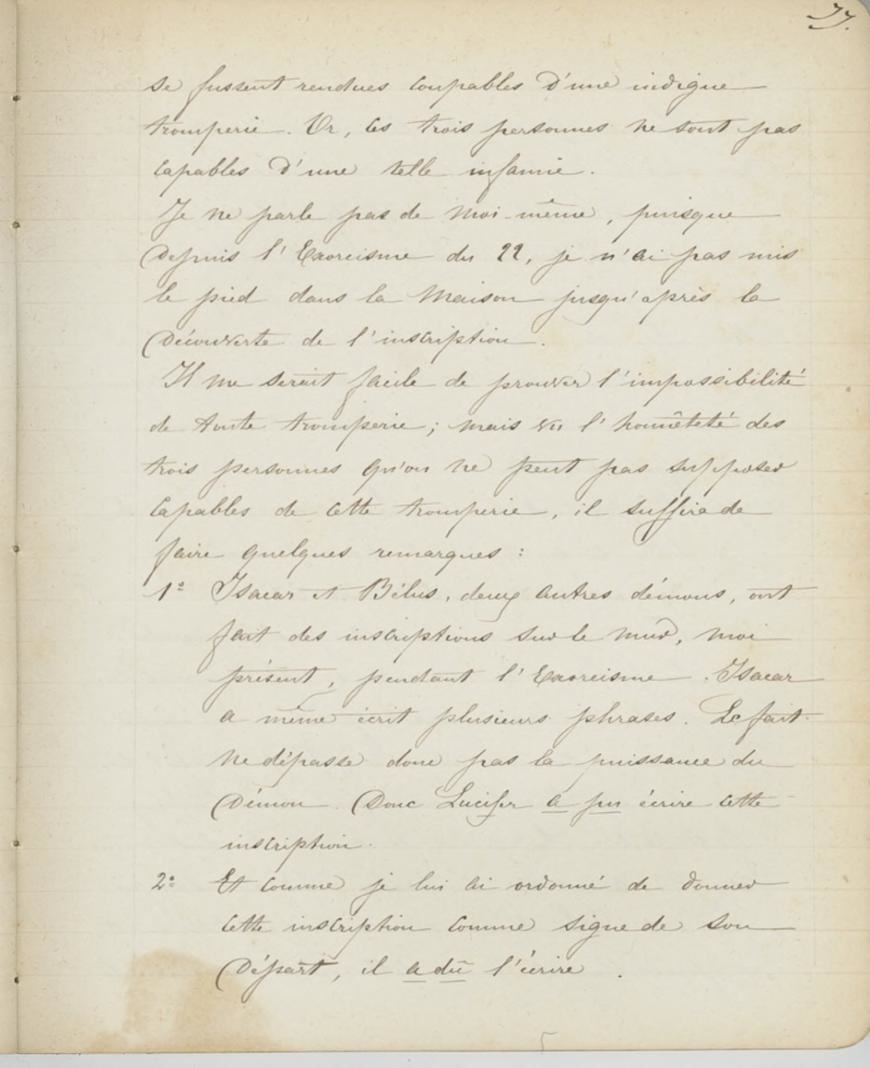 77.
se fussent rendues coupables d'une indigne
tromperie. Or, ces trois personnes ne sont pas
capables d'une telle infamie.
Je ne parle pas de moi-même, puisque
depuis l'Exorcisme du 22, je n'ai pas mis
le pied dans la maison jusqu'après la
découverte de l'inscription.
Il me serait facile de prouver l'impossibilité
de toute tromperie; mais vu l'honnêteté des
trois personnes qu'on ne peut pas supposer
capables de cette tromperie, il suffira de
faire quelques remarques :
1º Isacar et Bélus, deux autres démons, ont
fait des inscriptions sur le mur, moi
présent, pendant l'Exorcisme. Isacar
a même écrit plusieurs phrases. Le fait
ne dépasse donc pas la puissance du
Démon. Donc Lucifer a pu écrire cette
inscription.
2º Et comme je lui ai ordonné de donner
cette inscription comme signe de son
Départ, il a dû l'écrire.